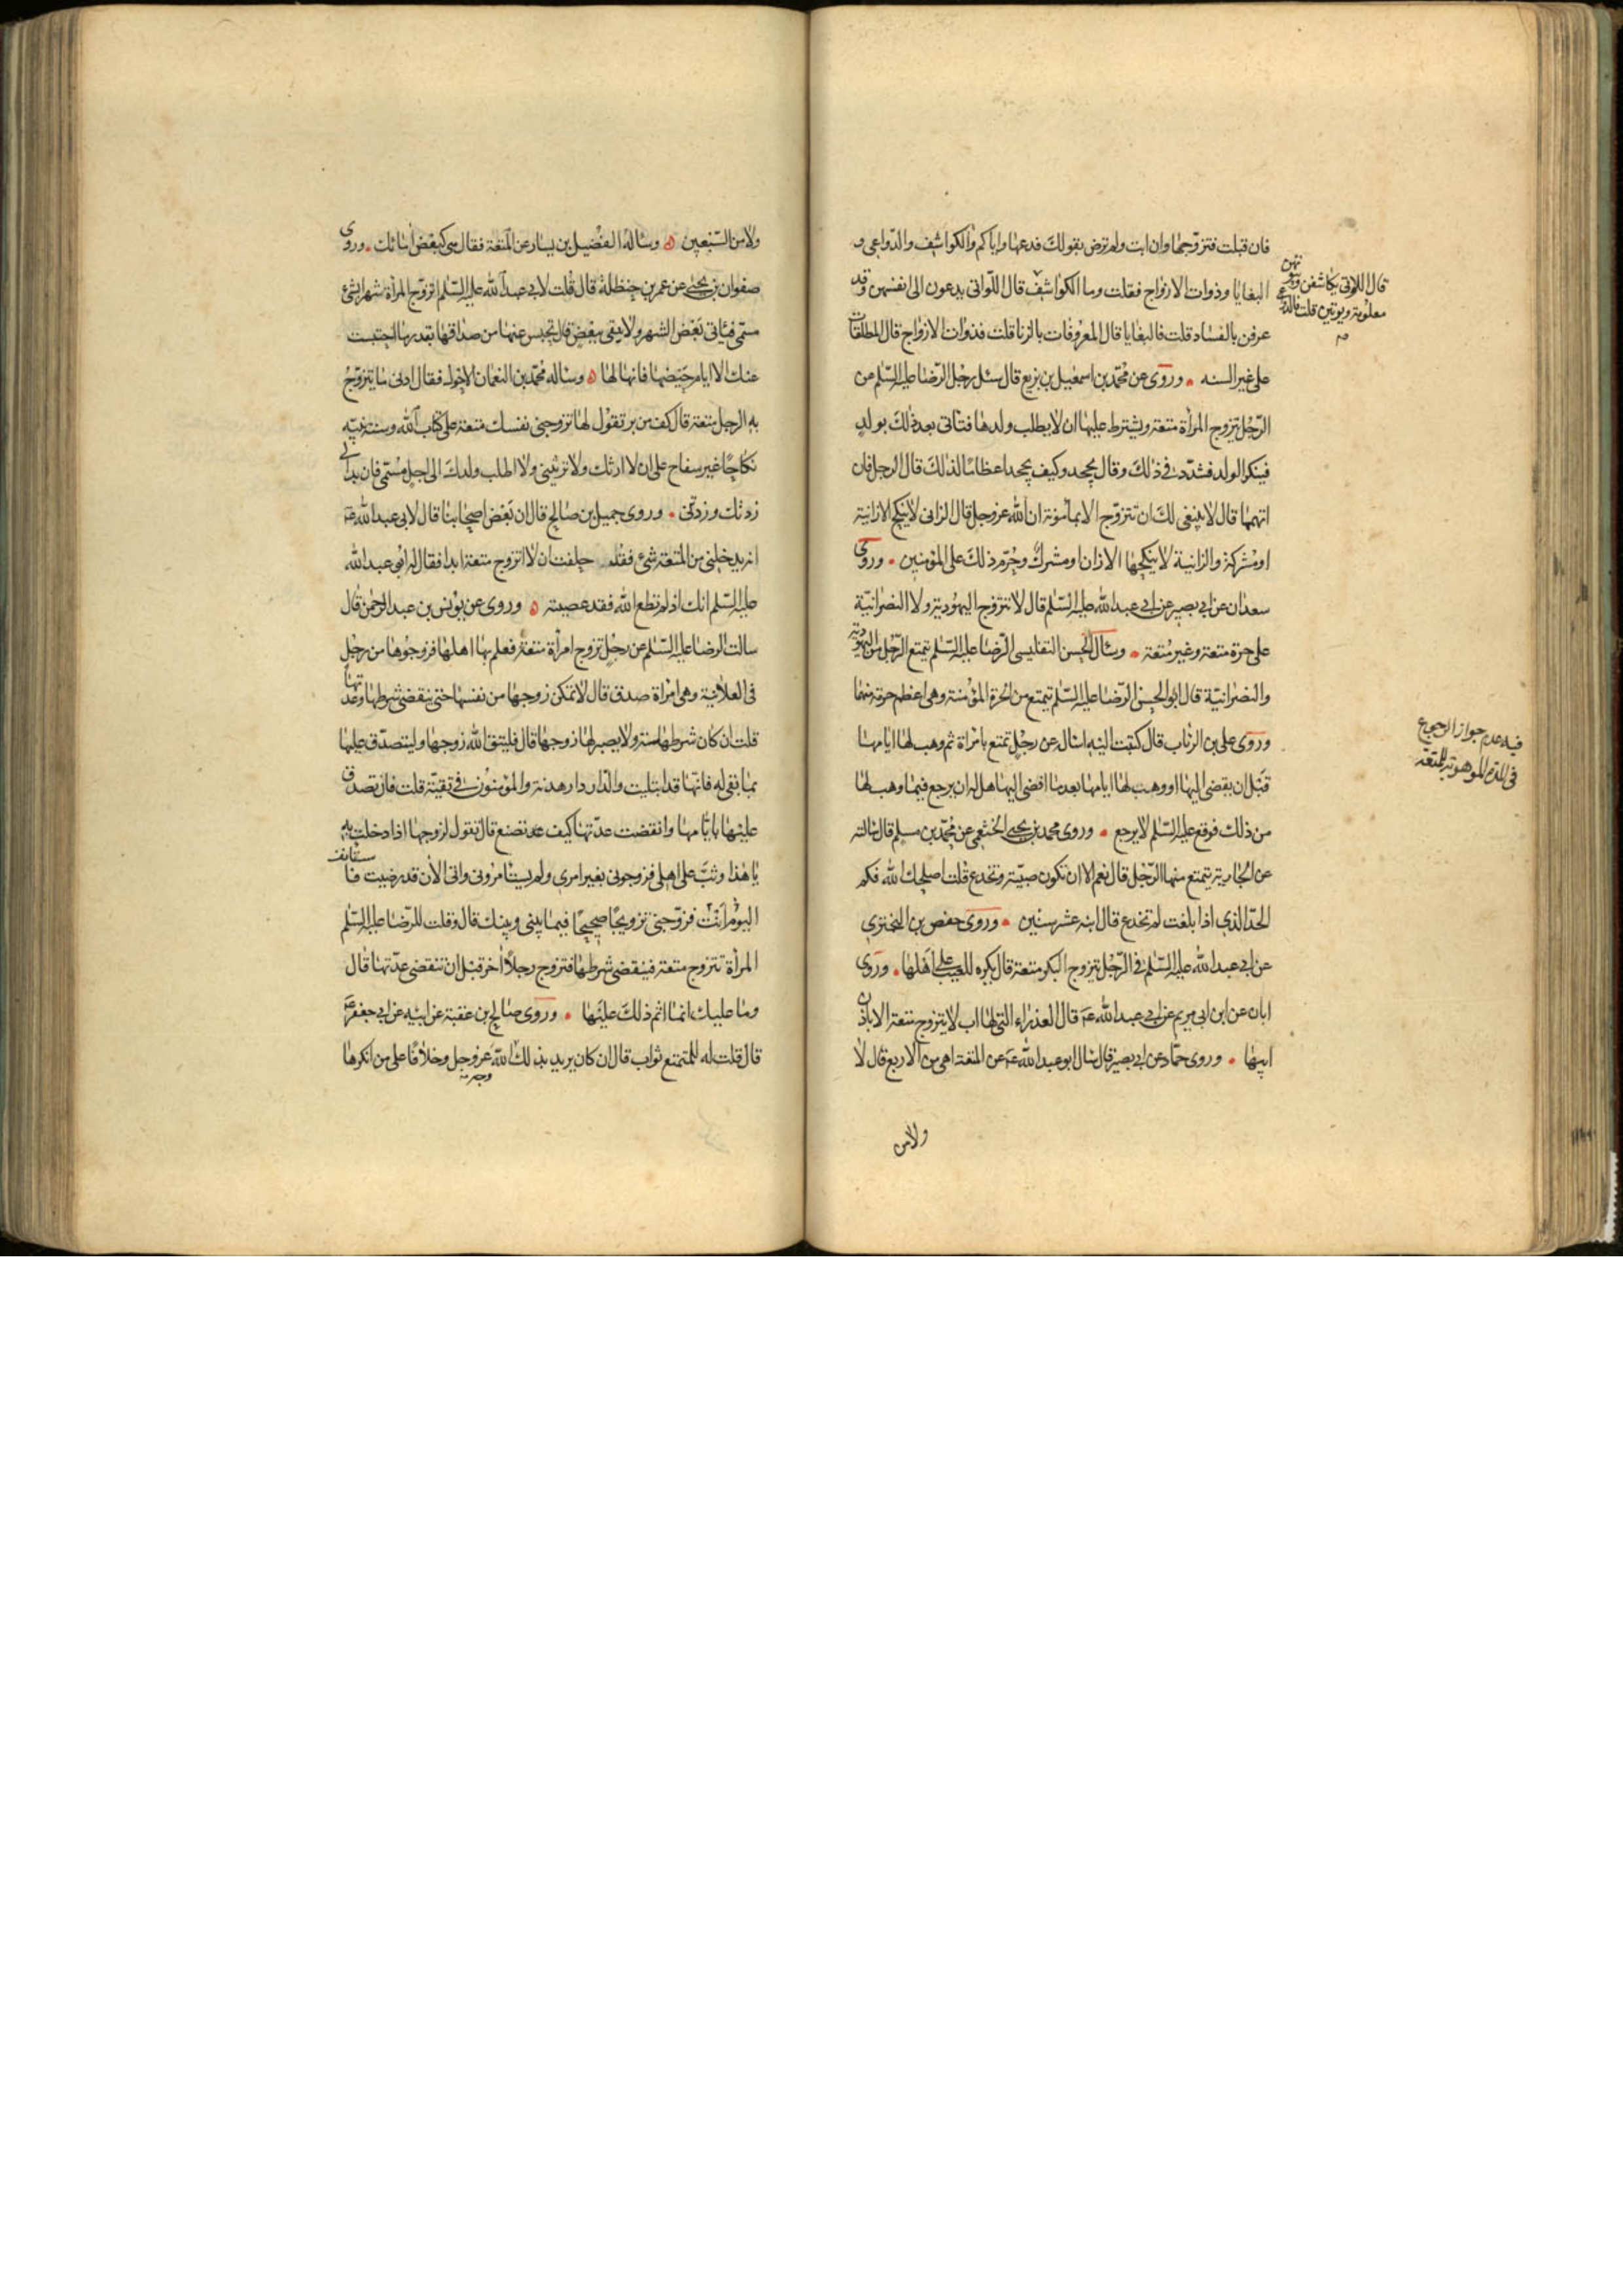 فان قبلت فتزوجها وان ابت ولم ترض بقولك فدعها واياكم والكواشف والدواعى و
البغايا وذوات الازواج فقلت وما الكواشف قال اللواتى يدعون الى انفسهن وقد
عرفن بالفساد قلت فالبغايا قال المعروفات بالزنا قلت فذوات الازواج قال المطلقات
على غير السنه وروى عن محمد بن اسمعيل بن بزيع قال سئل رجل الرضا عليه السلم عن
الرجل يتزوج المرأة متعة ويشترط عليها ان لا يطلب ولدها فتاتى بعد ذلك بولد
فينكر الولد فشدد فى ذلك وقال يجحد وكيف يجحد اعظاما لذلك قال الرجل فان
اتهمها قال لا ينبغى لك ان تتزوج الا بمأمونة ان الله عز وجل قال الزانى لا ينكح الا زانية
او مشركة والزانية لا ينكحها الا زان او مشرك وحرم ذلك على المؤمنين وروى
سعدان عن ابى بصير عن ابى عبد الله عليه السلم قال لا تتزوج اليهودية ولا النصرانية
على حرة متعة وغير متعة وسأل الحسن التفليسى الرضا عليه السلم يتمتع الرجل من اليهودية
والنصرانية قال ابو الحسن الرضا عليه السلم يتمتع من الحرة المؤمنة وهى اعظم حرمة منهما
وروى على بن الرئاب قال كتبت اليه اسال عن رجل تمتع بامراة ثم وهب لها ايامها
قبل ان يفضى اليها او وهب لها ايامها بعد ما افضى اليها هل له ان يرجع فيما وهب لها
من ذلك فوقع عليه السلم لا يرجع وروى محمد بن يحيى الخثعمى عن محمد بن مسلم قال سالته
عن الجارية يتمتع منها الرجل قال نعم الا ان تكون صبية تخدع قلت اصلحك الله فكم
الحد الذى اذا بلغت لم تخدع قال ابنة عشر سنين وروى حفص بن البخترى
عن ابى عبد الله عليه السلم فى الرجل يتزوج البكر متعة قال يكره للعيب على اهلها وروى
ابان عن ابن ابى مريم عن ابى عبد الله ع قال العذراء التى لها اب لا يتزوج متعة الا باذن
ابيها وروى حماد عن ابى بصير قال سال ابو عبد الله ع عن المتعة اهى من الاربع قال لا
ولا من
قال اللواتى يكاشفن وبيوتهن
معلومة ويوتين قلت فالدواعى
فيه عدم جواز الرجوع
فى المدة الموهوبة للمتعة
ولا من السبعين وساله الفضيل بن يسار عن المتعة فقال هى كبعض امائك وروى
صفوان بن يحيى عن عمر بن حنظلة قال قلت لابى عبد الله عليه السلم اتزوج المرأة شهرا بشئ
مسمى فتاتى بعض الشهر ولا يبقى ببعض قال تحبس عنها من صداقها بقدر ما احتبست
عنك الا ايام حيضها فانها لها وساله محمد بن النعمان الاحول فقال ادنى ما يتزوج
به الرجل متعة قال كف من بر تقول لها تزوجنى نفسك متعة على كتاب الله وسنة نبيه
نكاحا غير سفاح على ان لا ارثك ولا ترثينى ولا اطلب ولدك الى اجل مسمى فان بدا لى
زدتك وزدتنى وروى جميل بن صالح قال ان بعض اصحابنا قال لابى عبد الله ع
انه يدخلنى من المتعة شئ فقد حلفت ان لا اتزوج متعة ابدا فقال له ابو عبد الله
عليه السلم انك اذا لم تطع الله فقد عصيته وروى عن يونس بن عبد الرحمن قال
سالت الرضا عليه السلم عن رجل تزوج امرأة متعة فعلم بها اهلها فزوجوها من رجل
فى العلانية وهى امراة صدق قال لا تمكن زوجها من نفسها حتى ينقضى شرطها وعدتها
قلت ان كان شرطها سنة ولا يصبر لها زوجها قال فليتق الله زوجها وليتصدق عليها
بما بقى له فانها قد ابتليت والدار دار هدنة والمؤمنون فى تقية قلت فان تصدق
عليها بايامها وانقضت عدتها كيف تصنع قال تقول لزوجها اذا دخلت به
يا هذا وثب على اهلى فزوجونى بغير امرى ولم يستامرونى وانى الان قد رضيت فاستأنف
اليوم انت فزوجنى تزويجا صحيحا فيما بينى وبينك قال وقلت للرضا عليه السلم
المرأة تتزوج متعة فينقضى شرطها فتزوج رجلا اخر قبل ان تنقضى عدتها قال
وما عليك انما اثم ذلك عليها وروى صالح بن عقبة عن ابيه عن ابى جعفر ع
قال قلت له للمتمتع ثواب قال ان كان يريد بذلك الله عز وجل وخلافا على من انكرها